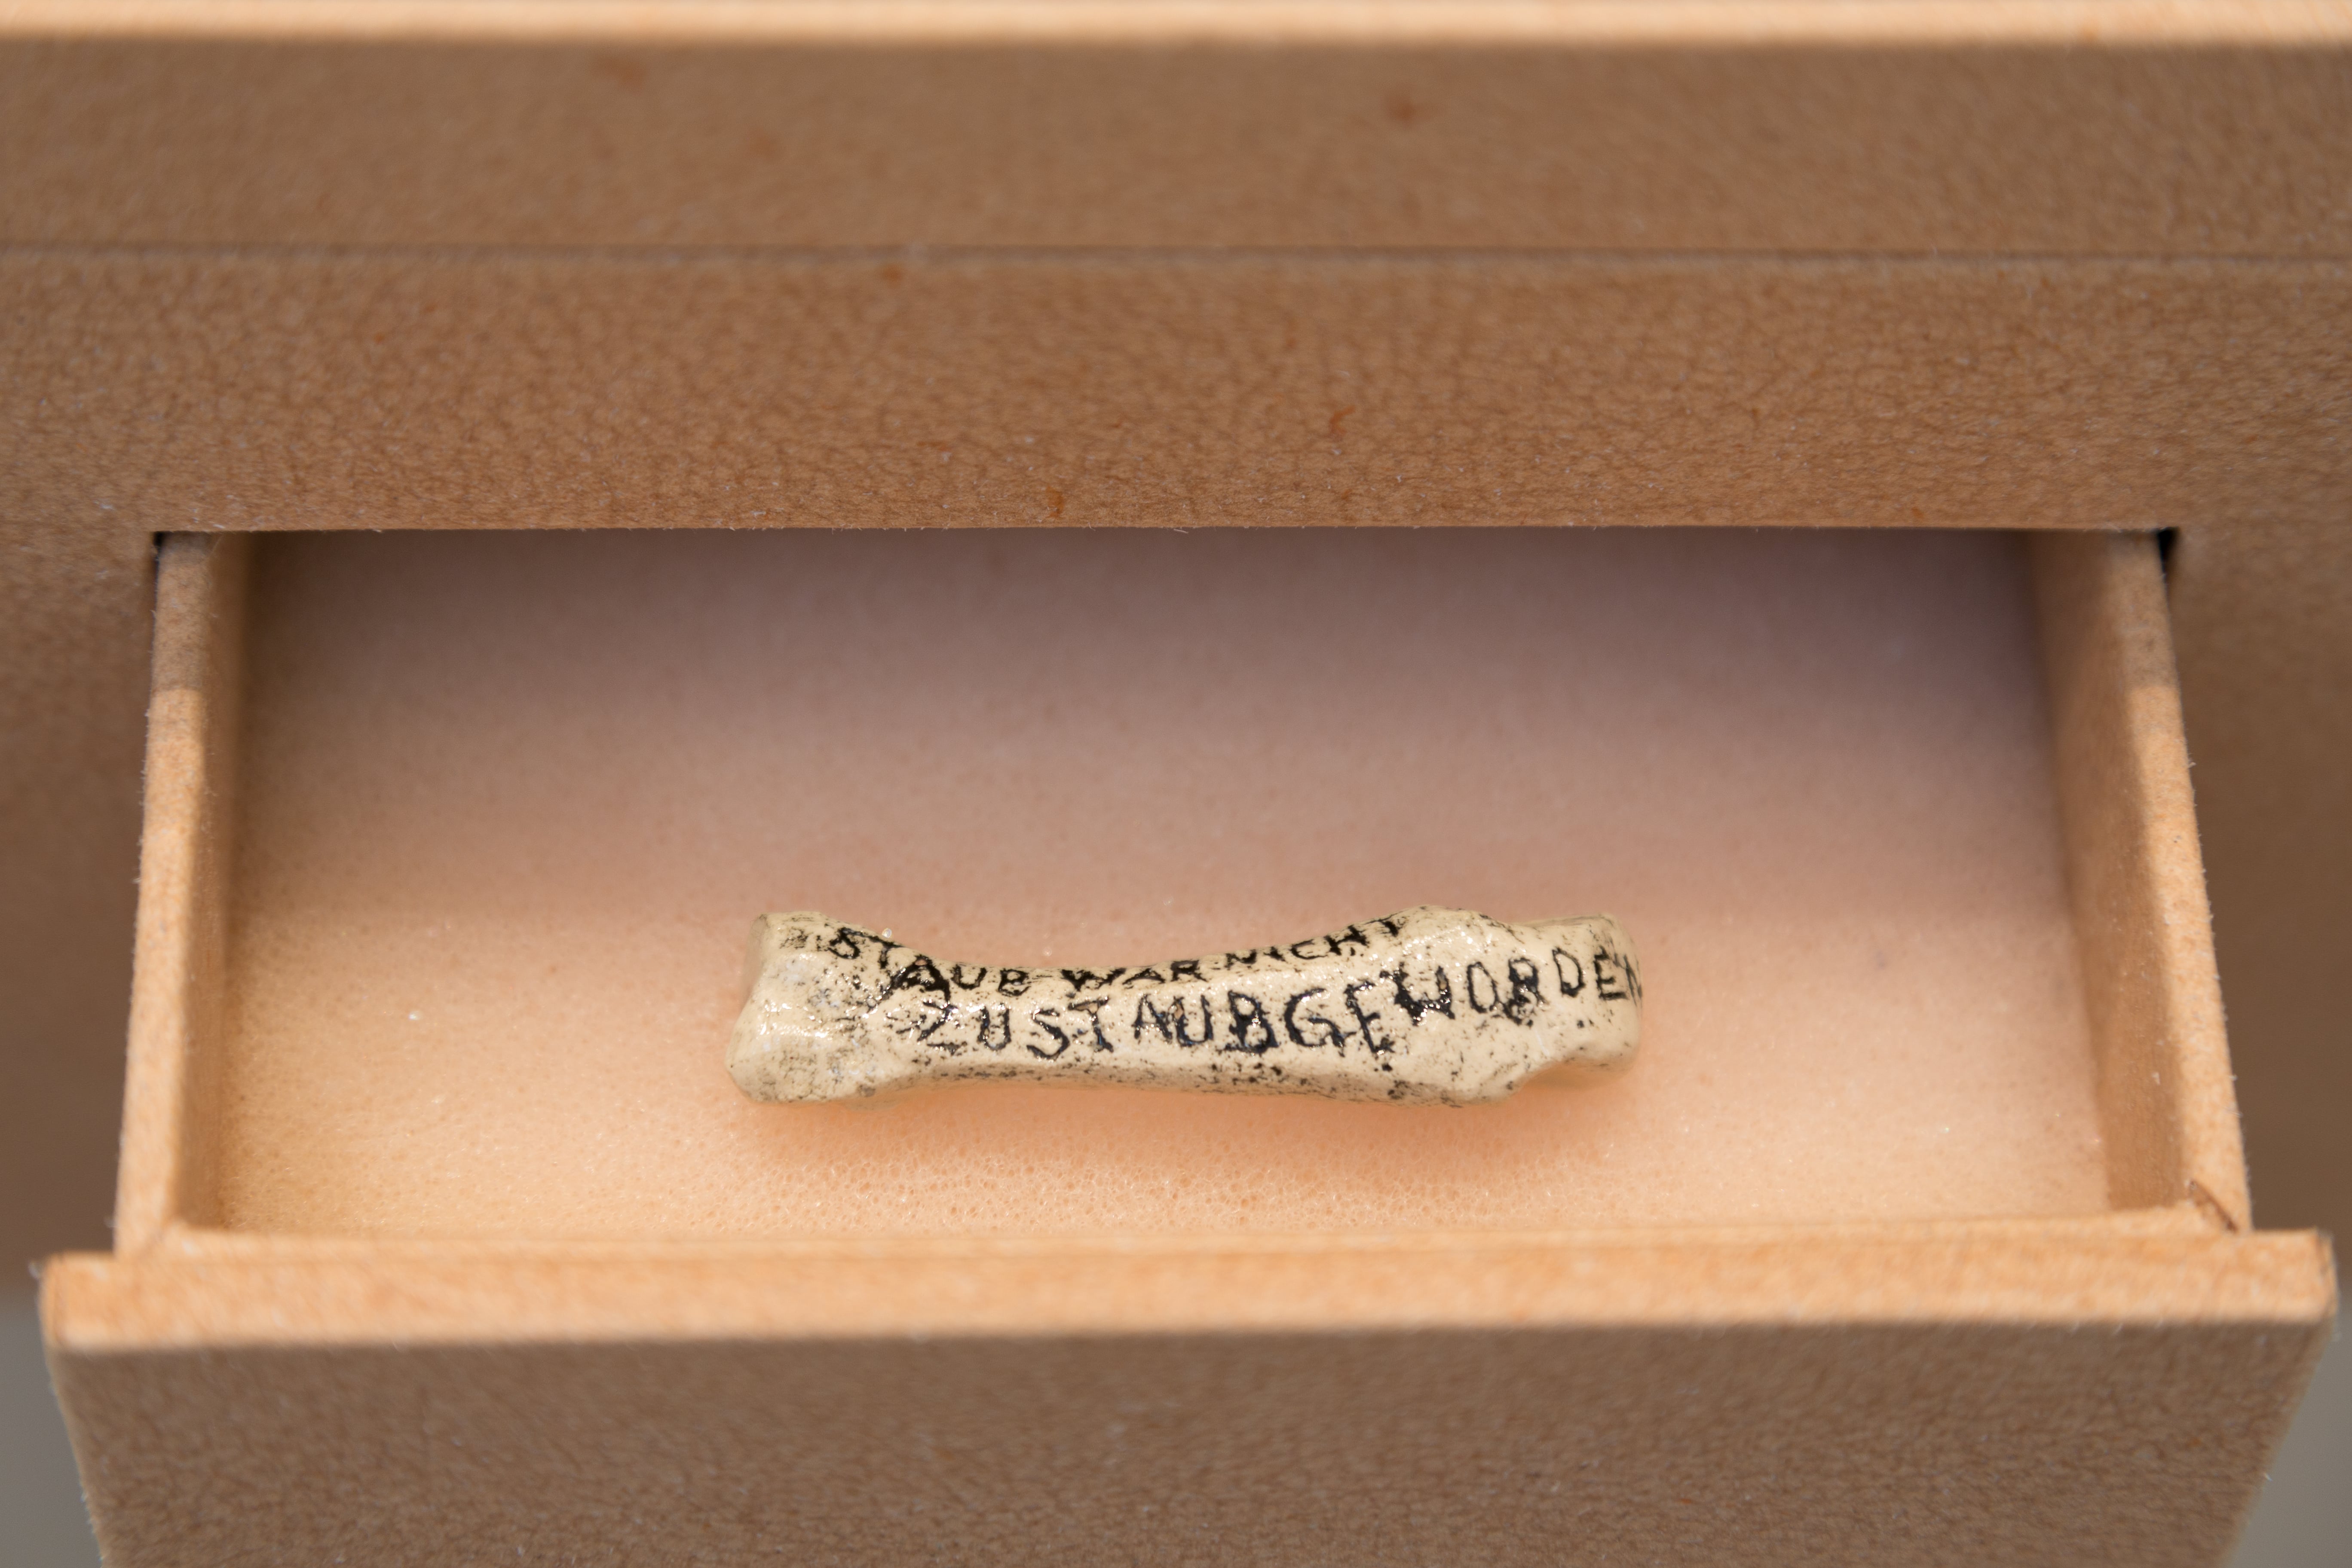 STAUB WAR NICHT
ZU STAUB GEWORDEN